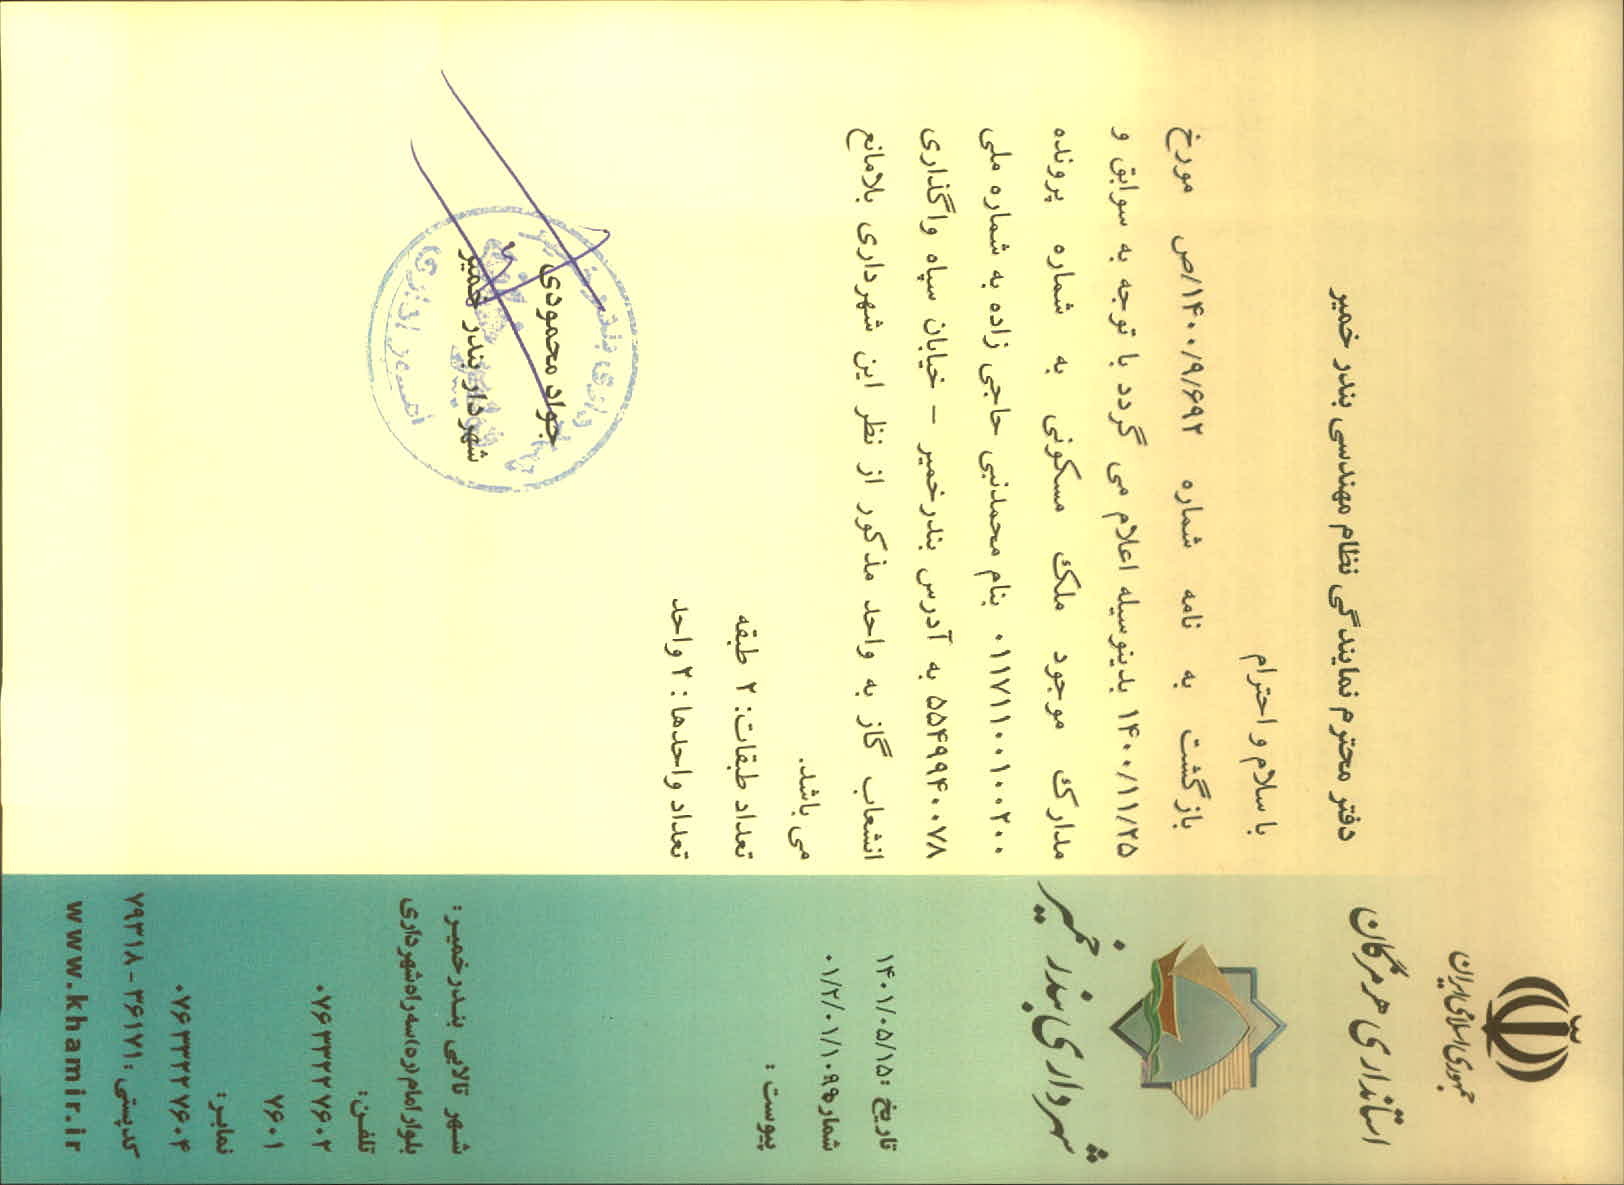 جمهوری اسلامی ایران
استانداری هرمزگان
شهرداری بندر خمیر
تاریخ : ۱۴۰۱/۰۵/۱۵
شماره ۰۱/۲/۰۱/۱۰۹۵
پیوست :
دفتر محترم نمایندگی نظام مهندسی بندر خمیر
با سلام و احترام
بازگشت به نامه شماره ۱۴۰۰/۹/۶۹۲/ص مورخ
۱۴۰۰/۱۱/۲۵ بدینوسیله اعلام می گردد با توجه به سوابق و
مدارک موجود ملک مسکونی به شماره پرونده
۰۱۱۷۱۱۰۰۱۰۰۲۰۰ بنام محمدنبی حاجی زاده به شماره ملی
۵۵۴۹۹۴۰۰۷۸ به آدرس بندرخمیر – خیابان سپاه واگذاری
انشعاب گاز به واحد مذکور از نظر این شهرداری بلامانع
می باشد.
تعداد طبقات: ۲ طبقه
تعداد واحدها : ۲ واحد
جواد محمودی
شهردار بندر خمیر
شهر تالابی بندرخمیر :
بلوار امام (ره) سه راه شهرداری
تلفن:
۰۷۶۳۳۳۲۷۶۰۲
۷۶۰۱
نمابر:
۰۷۶۳۳۳۲۷۶۰۴
کدپستی : ۳۶۱۷۱ - ۷۹۳۱۸
www.khamir.ir